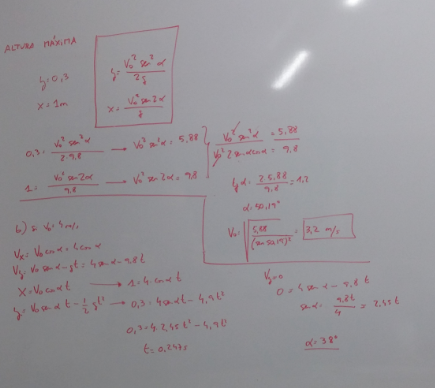 ALTURA MÁXIMA
y = 0,3
x = 1m
y = V₀² sen² α / 2g
x = V₀² sen 2α / g
0,3 = V₀² sen² α / 2·9,8 → V₀² sen² α = 5,88
1 = V₀² sen 2α / 9,8 → V₀² sen 2α = 9,8
V₀² sen² α / V₀² 2 sen α cos α = 5,88 / 9,8
tg α = 2·5,88 / 9,8 = 1,2
α = 50,19°
V₀ = √(5,88 / (sen 50,19)²) = 3,2 m/s
b) si V₀ = 4 m/s
Vx = V₀ cos α = 4 cos α
Vy = V₀ sen α − gt = 4 sen α − 9,8t
x = V₀ cos α t → 1 = 4 cos α t
y = V₀ sen α t − 1/2 gt² → 0,3 = 4 sen α t − 4,9t²
0,3 = 4·2,45t² − 4,9t²
t = 0,247s
Vy = 0
0 = 4 sen α − 9,8 t
sen α = 9,8t / 4 = 2,45 t
α = 38°